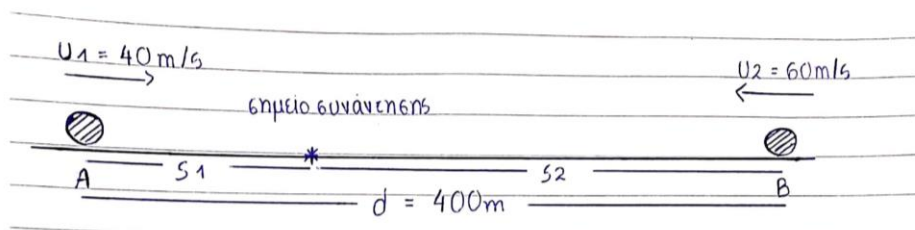 U1 = 40m/s
U2 = 60m/s
σημείο συνάντησης
S1
S2
A
B
d = 400m